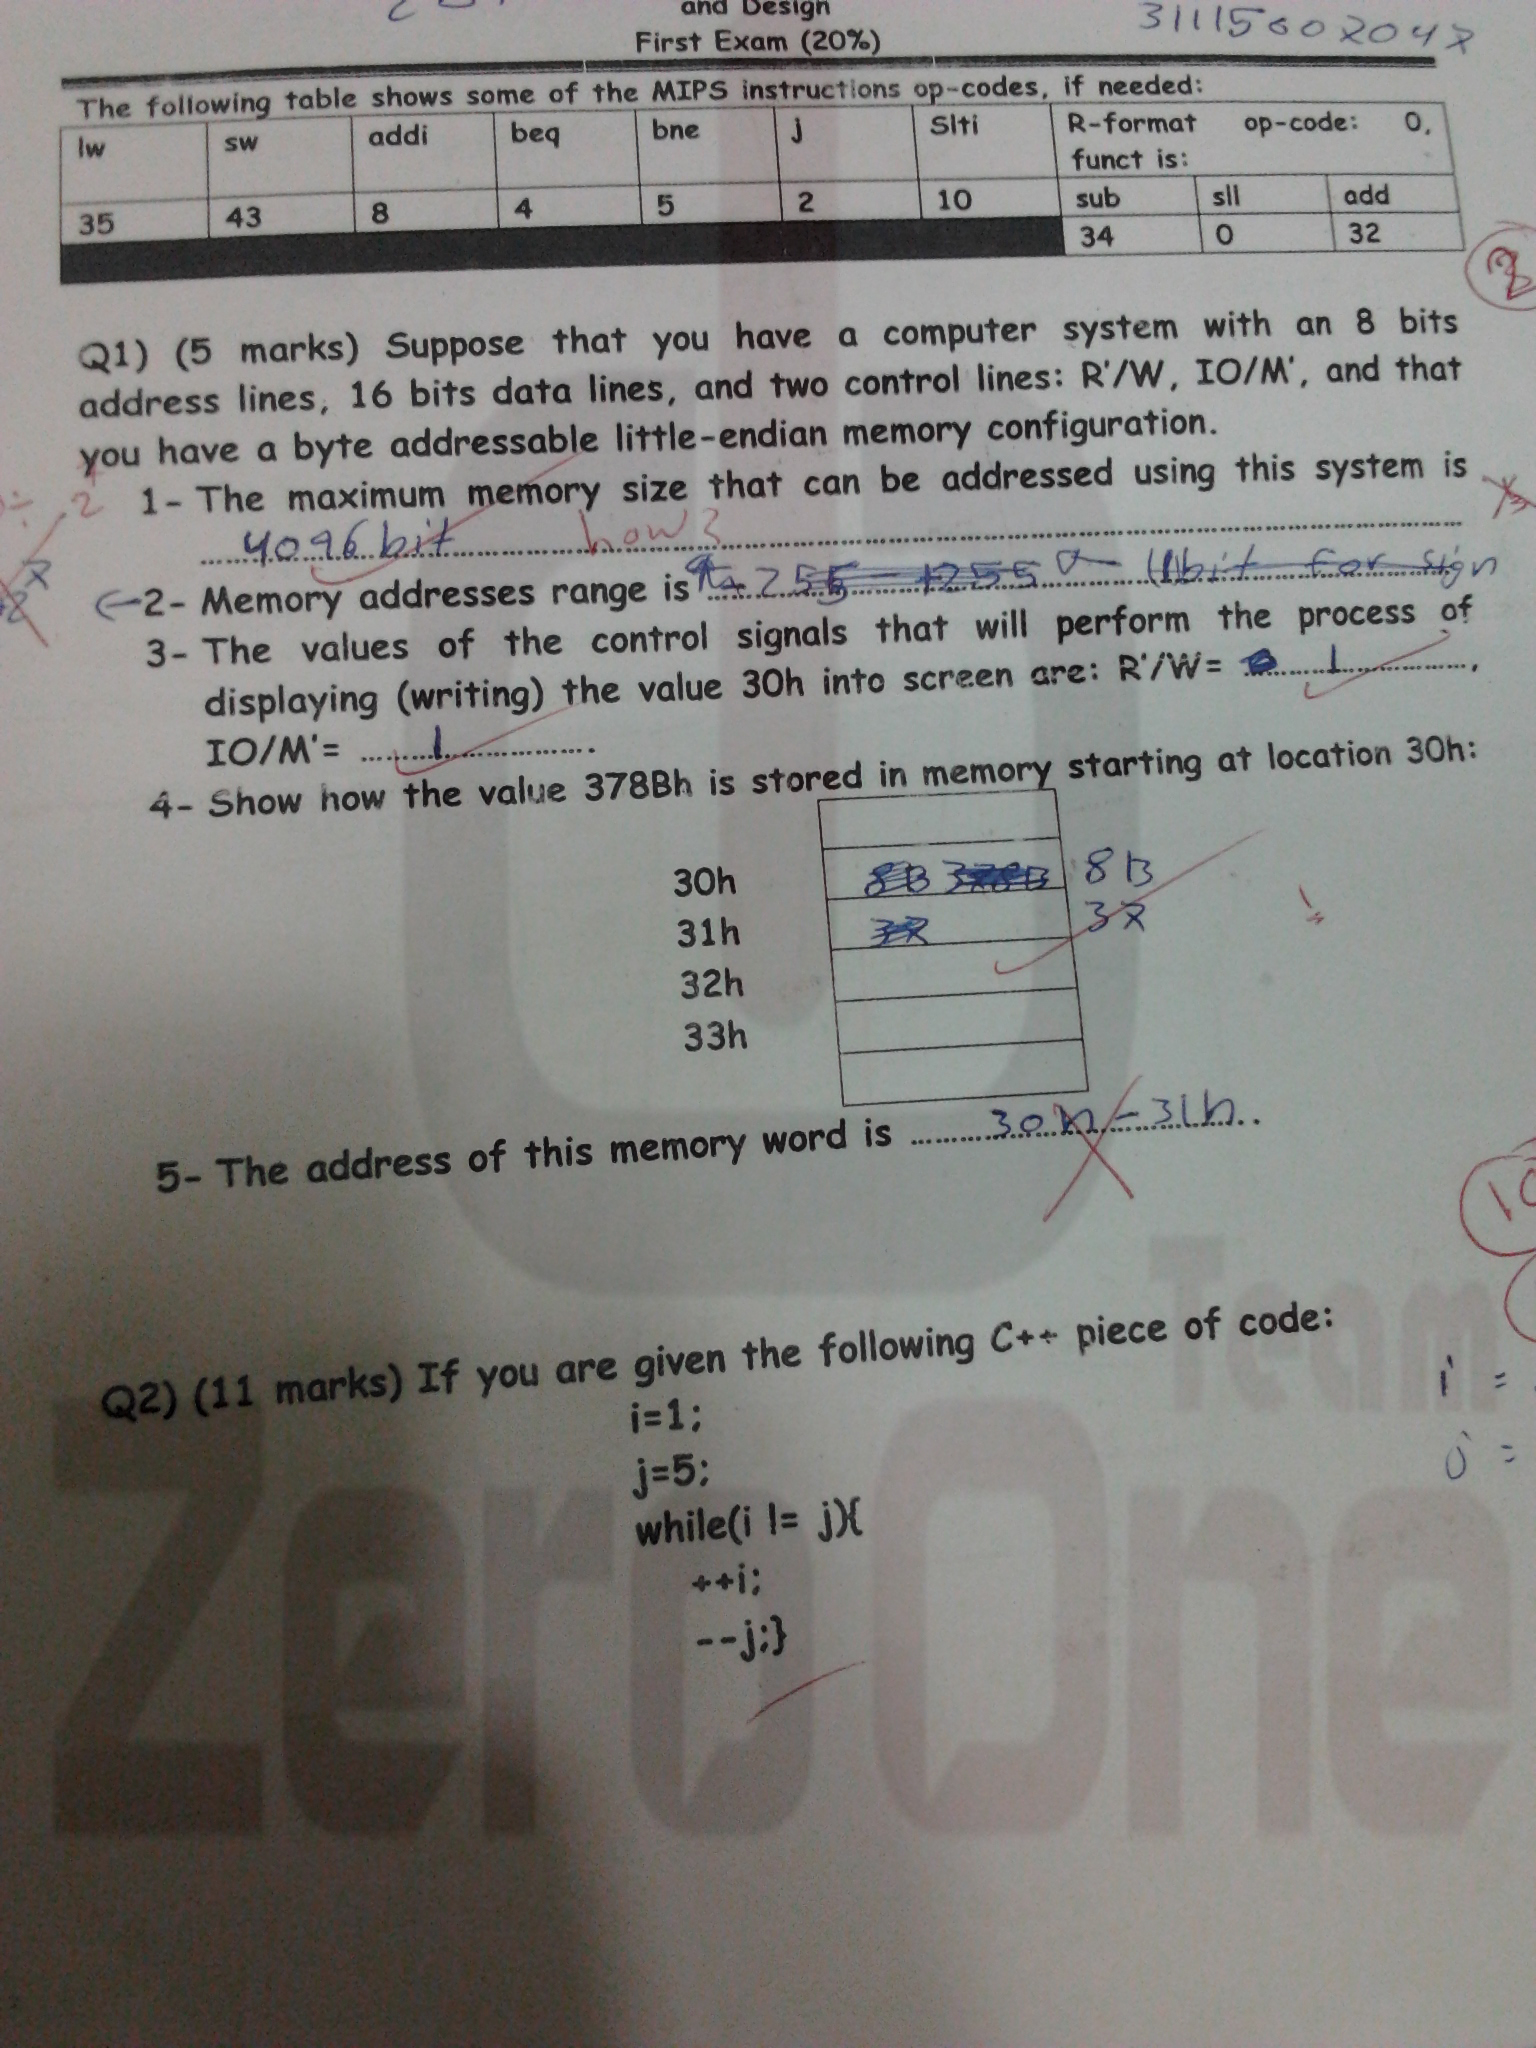 and Design
First Exam (20%)
31115002047
The following table shows some of the MIPS instructions op-codes, if needed:
lw sw addi beq bne j Slti R-format op-code: 0,
funct is:
35 43 8 4 5 2 10 sub sll add
34 0 32
Q1) (5 marks) Suppose that you have a computer system with an 8 bits
address lines, 16 bits data lines, and two control lines: R'/W, IO/M', and that
you have a byte addressable little-endian memory configuration.
1- The maximum memory size that can be addressed using this system is
4096 bit how?
2- Memory addresses range is 255 +255 1 bit for sign
3- The values of the control signals that will perform the process of
displaying (writing) the value 30h into screen are: R'/W= 1 ,
IO/M'= 1 .
4- Show how the value 378Bh is stored in memory starting at location 30h:
30h 8B 378B 8B
31h 37 37
32h
33h
5- The address of this memory word is 30h - 31h.
10
Q2) (11 marks) If you are given the following C++ piece of code:
i=1;
j=5;
while(i != j){
++i;
--j;}
i =
j =
Team
ZeroOne